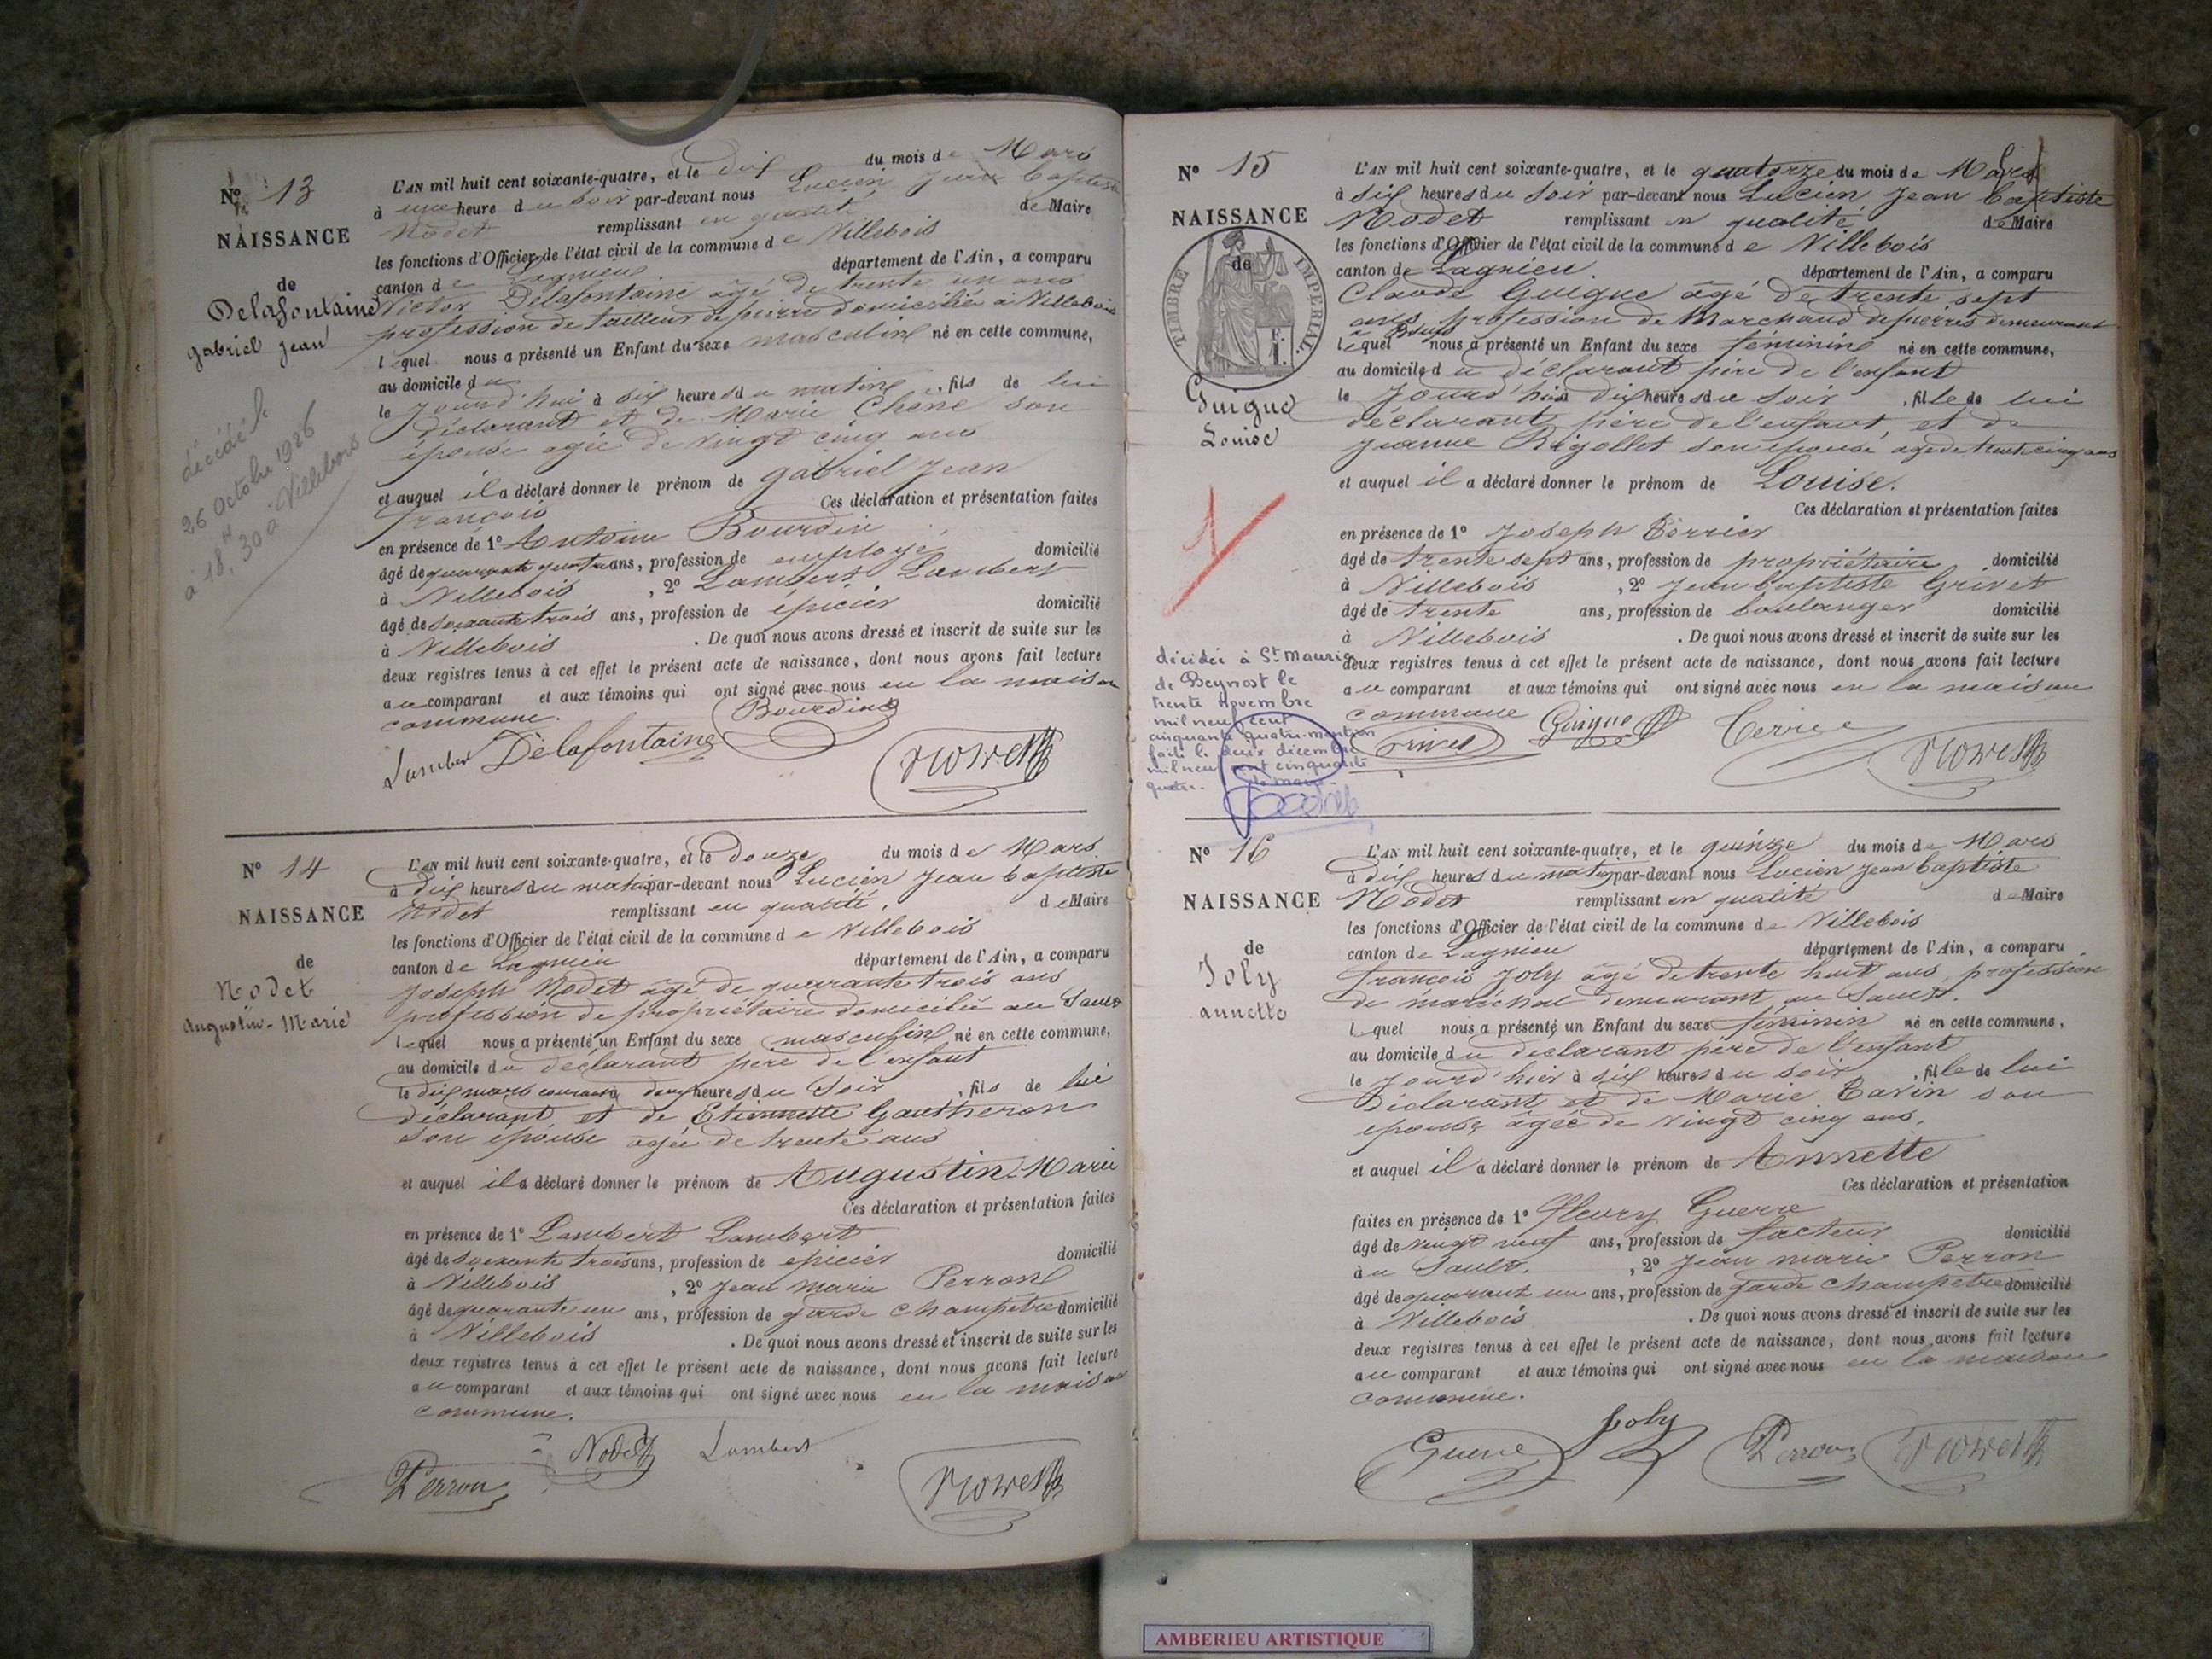 N° 13
NAISSANCE
de
Delafontaine
gabriel jean
décédé le
26 Octobre 1926
à 18 H, 30 à Villebois
L'AN mil huit cent soixante-quatre, et le dix du mois de Mars
à une heure du soir par-devant nous Lucien Jean Baptiste
Nodet remplissant en qualité de Maire
les fonctions d'Officier de l'état civil de la commune de Villebois
canton de Lagnieu département de l'Ain, a comparu
Victor Delafontaine agé de trente un ans
profession de tailleur de pierre domicilié à Villebois
lequel nous a présenté un Enfant du sexe masculin né en cette commune,
au domicile du
le jourd'hui à six heures du matin, fils de lui
déclarant et de Marie Chêne son
épouse agée de vingt cinq ans
et auquel il a déclaré donner le prénom de gabriel Jean
françois Ces déclaration et présentation faites
en présence de 1° Antoine Bourdin
âgé de quarante quatre ans, profession de employé domicilié
à Villebois, 2° Lambert Lambert
âgé de soixante trois ans, profession de épicier domicilié
à Villebois. De quoi nous avons dressé et inscrit de suite sur les
deux registres tenus à cet effet le présent acte de naissance, dont nous avons fait lecture
au comparant et aux témoins qui ont signé avec nous en la maison
commune.
Bourdin
Lambert Delafontaine
N° 14
NAISSANCE
de
Nodet
augustin-Marie
L'AN mil huit cent soixante-quatre, et le douze du mois de Mars
à dix heures du matin par-devant nous Lucien Jean baptiste
Nodet remplissant en qualité de Maire
les fonctions d'Officier de l'état civil de la commune de Villebois
canton de Lagnieu département de l'Ain, a comparu
Joseph Nodet agé de quarante trois ans
profession de propriétaire domicilié au Sault
lequel nous a présenté un Enfant du sexe masculin né en cette commune,
au domicile du déclarant père de l'enfant
le dix mars courant à deux heures du Soir, fils de lui
déclarant et de Etiennette Gautheron
son épouse agée de trente ans
et auquel il a déclaré donner le prénom de Augustin Marie
Ces déclaration et présentation faites
en présence de 1° Lambert Lambert
âgé de soixante trois ans, profession de epicier domicilié
à Villebois, 2° Jean Marie Perron
âgé de quarante un ans, profession de garde champêtre domicilié
à Villebois. De quoi nous avons dressé et inscrit de suite sur les
deux registres tenus à cet effet le présent acte de naissance, dont nous avons fait lecture
au comparant et aux témoins qui ont signé avec nous en la maison
commune.
Nodet Lambert
Perron
N° 15
NAISSANCE
de
TIMBRE IMPÉRIAL
Guigue
Louise
1
décédée à St Maurice
de Beynost le
trente novembre
mil neuf cent
cinquante quatre mention
faite le deux décembre
mil neuf cent cinquante
quatre.
L'AN mil huit cent soixante-quatre, et le quatorze du mois de Mars
à six heures du soir par-devant nous Lucien Jean baptiste
Nodet remplissant en qualité de Maire
les fonctions d'Officier de l'état civil de la commune de Villebois
canton de Lagnieu. département de l'Ain, a comparu
Claude Guigue âgé de trente sept
ans profession de Marchand de pierres demeurant
lequel nous a présenté un Enfant du sexe féminin né en cette commune,
au domicile du déclarant père de l'enfant
le jourd'hier à dix heures du soir, fille de lui
déclarant père de l'enfant et de
Jeanne Rigollet son épouse agée de trente cinq ans
et auquel il a déclaré donner le prénom de Louise.
Ces déclaration et présentation faites
en présence de 1° Joseph Terrier
âgé de trente sept ans, profession de propriétaire domicilié
à Villebois, 2° Jean baptiste Grivet
âgé de trente ans, profession de boulanger domicilié
à Villebois. De quoi nous avons dressé et inscrit de suite sur les
deux registres tenus à cet effet le présent acte de naissance, dont nous avons fait lecture
au comparant et aux témoins qui ont signé avec nous en la maison
commune
Grivet Guigue
N° 16
NAISSANCE
de
Joly
annette
L'AN mil huit cent soixante-quatre, et le quinze du mois de Mars
à dix heures du matin par-devant nous Lucien Jean baptiste
Nodet remplissant en qualité de Maire
les fonctions d'Officier de l'état civil de la commune de Villebois
canton de Lagnieu département de l'Ain, a comparu
françois Joly âgé de trente huit ans, profession
de maréchal demeurant au Sault.
lequel nous a présenté un Enfant du sexe féminin né en cette commune,
au domicile du déclarant père de l'enfant
le jourd'hier à six heures du soir, fille de lui
déclarant et de Marie Tavin son
epouse agée de vingt cinq ans,
et auquel il a déclaré donner le prénom de Annette
Ces déclaration et présentation
faites en présence de 1° fleury Guerre
âgé de vingt neuf ans, profession de facteur domicilié
au Sault, 2° Jean marie Perron
âgé de quarant un ans, profession de garde champêtre domicilié
à Villebois. De quoi nous avons dressé et inscrit de suite sur les
deux registres tenus à cet effet le présent acte de naissance, dont nous avons fait lecture
au comparant et aux témoins qui ont signé avec nous en la maison
commune.
Guerre Joly Perron
AMBERIEU ARTISTIQUE